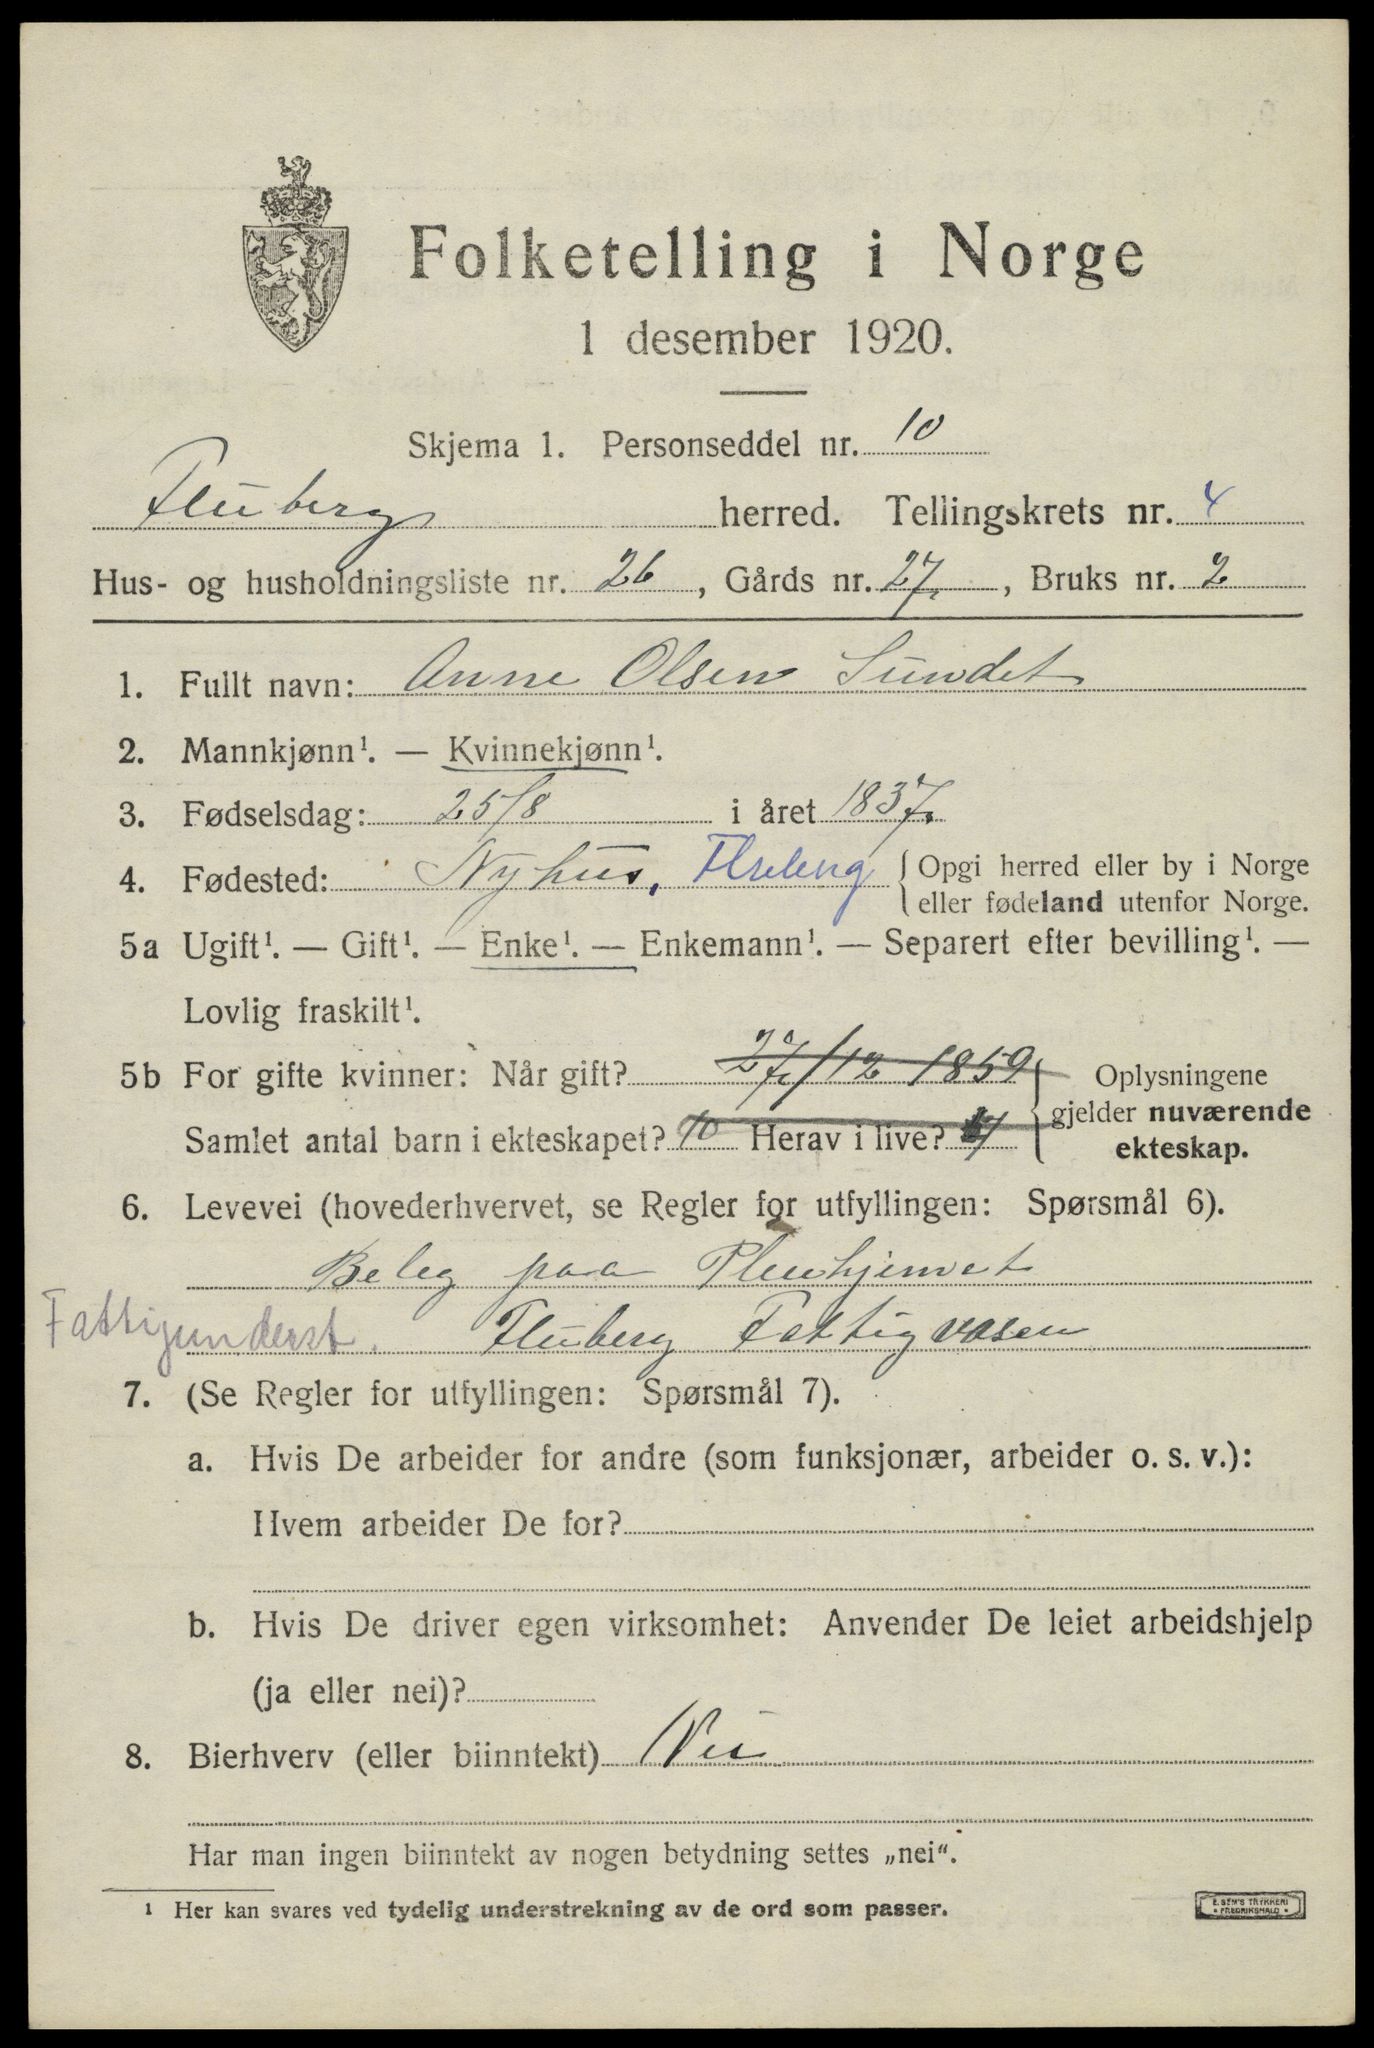 Folketelling i Norge
1 desember 1920.
Skjema 1. Personseddel nr. 10
Fluberg herred. Tellingskrets nr. 4
Hus- og husholdningsliste nr. 26, Gårds nr. 27, Bruks nr. 2
1. Fullt navn: Anne Olsen Sundet
2. Mannkjønn¹. — Kvinnekjønn¹.
3. Fødselsdag: 25/8 i året 1837.
4. Fødested: Nyhus, { Opgi herred eller by i Norge
{ eller fødeland utenfor Norge.
5a Ugift¹. — Gift¹. — Enke¹. — Enkemann¹. — Separert efter bevilling¹. —
Lovlig fraskilt¹.
5b For gifte kvinner: Når gift? 27/12 1859 } Oplysningene
gjelder nuværende
Samlet antal barn i ekteskapet? 10 Herav i live? ekteskap.
6. Levevei (hovederhvervet, se Regler for utfyllingen: Spørsmål 6).
Beleg paa Pleiehjemet
Fattigunderst. Fluberg Fattigvæsen
7. (Se Regler for utfyllingen: Spørsmål 7).
a. Hvis De arbeider for andre (som funksjonær, arbeider o. s. v.):
Hvem arbeider De for?
b. Hvis De driver egen virksomhet: Anvender De leiet arbeidshjelp
(ja eller nei)?
8. Bierhverv (eller biinntekt) Nei
Har man ingen biinntekt av nogen betydning settes „nei“.
¹ Her kan svares ved tydelig understrekning av de ord som passer.
E. SEM'S TRYKKERI
• FREDRIKSHALD •